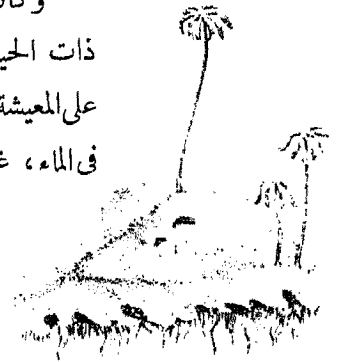 ذات الحي
على المعيشة
في الماء، غ